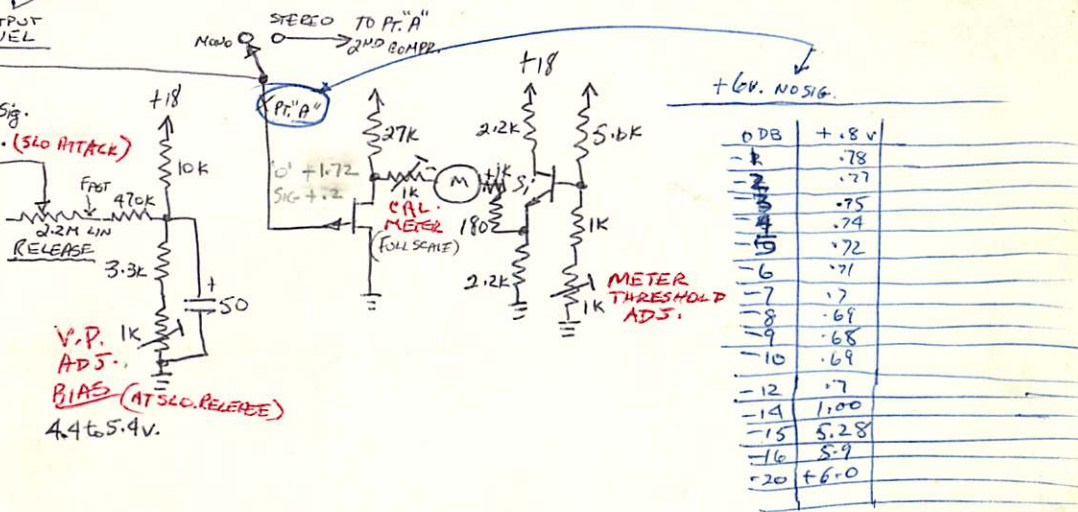 TPUT
VEL
MONO
STEREO
TO PT. "A"
2ND COMPR.
PT. "A"
+6V. NO SIG.
Sig.
(SLO ATTACK)
+18
10K
FAST
470K
2.2M LIN
RELEASE
3.3K
+
50
1K
V.P.
ADJ.
BIAS (AT SLO. RELEASE)
4.4 to 5.4v.
27K
"0" +1.72
SIG +.2
1K
CAL.
METER
(FULL SCALE)
M
180
+18
2.2K
5.6K
Si
2.2K
1K
1K
METER
THRESHOLD
ADJ.
0 DB +.8 v
-1 .78
-2 .77
-3 .75
-4 .74
-5 .72
-6 .71
-7 .7
-8 .69
-9 .68
-10 .69
-12 .7
-14 1.00
-15 5.28
-16 5.9
-20 +6.0